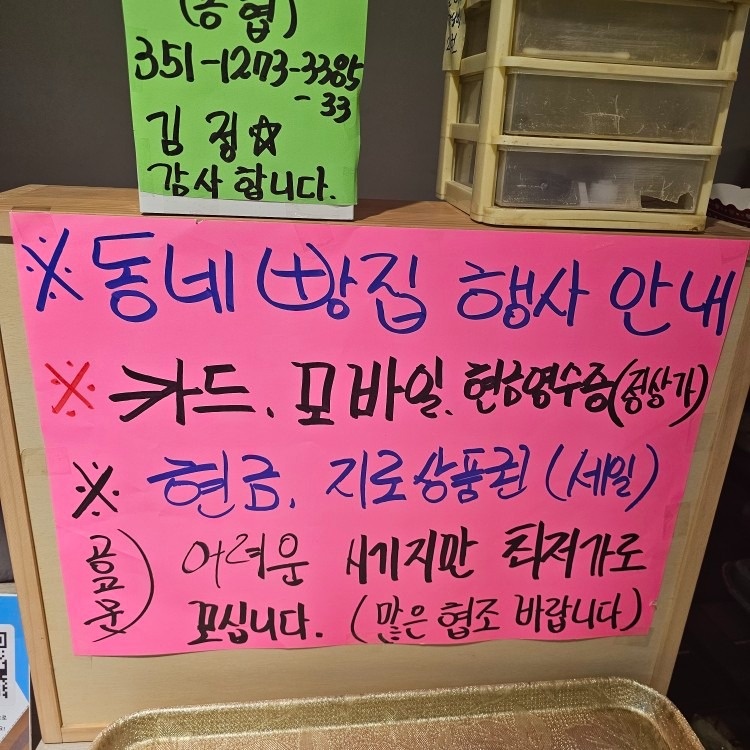 (농협)
351-1273-3385
-33
김정☆
감사합니다.
※동네 빵집 행사 안내
※ 카드. 모바일. 현금영수증(정상가)
※ 현금. 지로상품권 (세일)
공고문) 어려운 시기지만 최저가로
모십니다. (많은 협조 바랍니다)